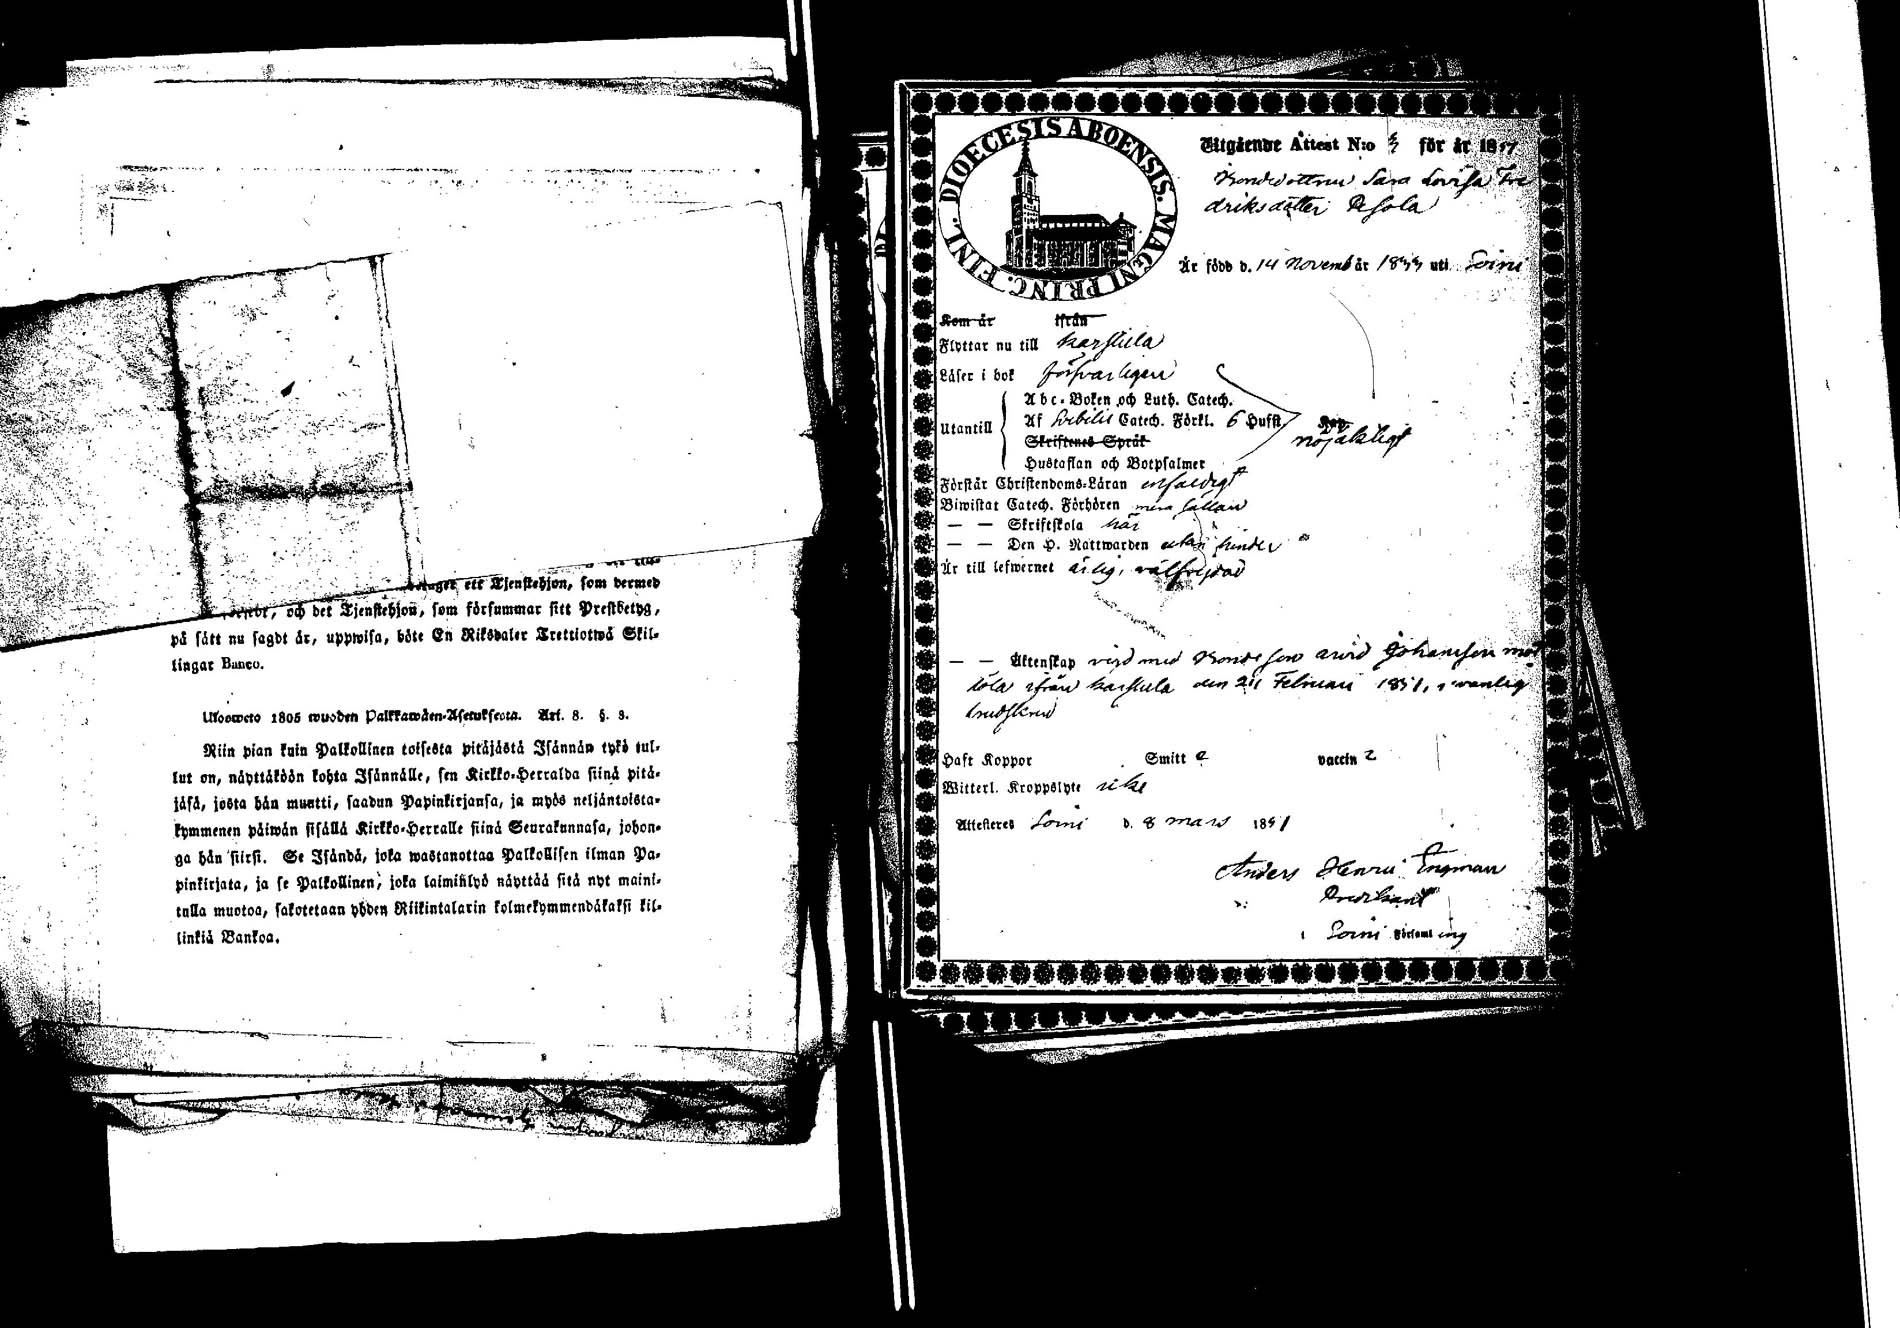 ett Tjenstehjon, som dermed
och det Tjenstehjon, som försummar sitt Prestbetyg,
på sätt nu sagdt är, uppwisa, böte En Riksdaler Trettiotwå Skil-
lingar Banco.
Ulosweto 1805 wuoden Palkkawäen-Asetuksesta. Art. 8. §. 3.
Niin pian kuin Palkollinen toisesta pitäjästä Isännän tykö tul-
lut on, näyttäköön kohta Isännälle, sen Kirkko-Herralda siinä pitä-
jäsä, josta hän muutti, saadun Papinkirjansa, ja myös neljäntoista-
kymmenen päiwän sisällä Kirkko-Herralle siinä Seurakunnasa, johon-
ga hän siirsi. Se Isändä, joka wastanottaa Palkollisen ilman Pa-
pinkirjata, ja se Palkollinen, joka laiminlyö näyttää sitä nyt maini-
tulla muotoa, sakotetaan yhden Riikintalarin kolmekymmendäkaksi kil-
linkiä Bankoa.
DIOECESIS ABOENSIS. MAGNI PRINC. FINL.
Utgående Attest N:o för år 18
Bondedottren Sara Lovisa Fre
driksdotter Pesola
Är född d. 14 Novemb år 1833 uti Soini
Kom år ifrån
Flyttar nu till Karstula
Läser i bok försvarligen
Utantill
Abc-Boken och Luth. Catech.
Af Svebilii Catech. Förkl. 6 Hufst.
Skriftenes Språk
Hustaflan och Botpsalmer
nöjaktigt
Förstår Christendoms-Läran enfaldigt
Biwistat Catech. Förhören mera sällan
— — Skriftskola här
— — Den H. Nattwarden utan hinder
Är till lefwernet ärlig, välfrejdad
— — Äktenskap vigd med Bonde son Arvid Johansson
ifrån Karstula den Februari 1851, i vanlig
brudskrud
Haft Koppor Smitt vaccin
Witterl. Kroppslyte icke
Attesteres Soini d. 8 Mars 1851
Anders Henric Engman
Predikant
i Soini Församling